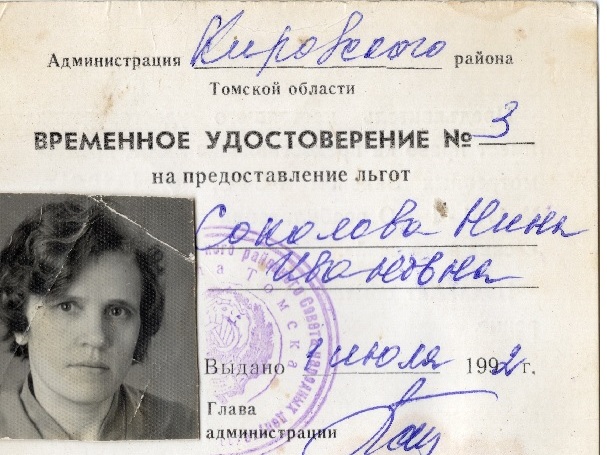 Администрация Кировского района
Томской области
ВРЕМЕННОЕ УДОСТОВЕРЕНИЕ № 3
на предоставление льгот
Соколова Нина
Ивановна
Выдано 1 июля 1992г.
Глава
администрации